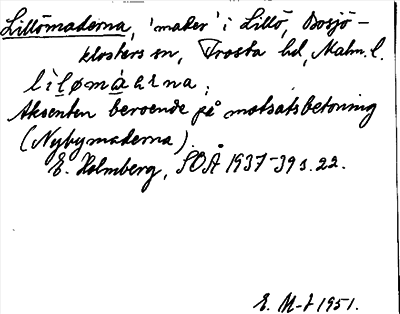 Lillömaderna, 'mader' i Lillö, Bosjö-
klosters sn, Frosta hd, Malm. l.
lìlømáarna;
Aksenten beroende på motsatsbetoning
(Nybymaderna).
E. Holmberg, SOÅ 1937-39 s. 22.
E. M-t 1951.